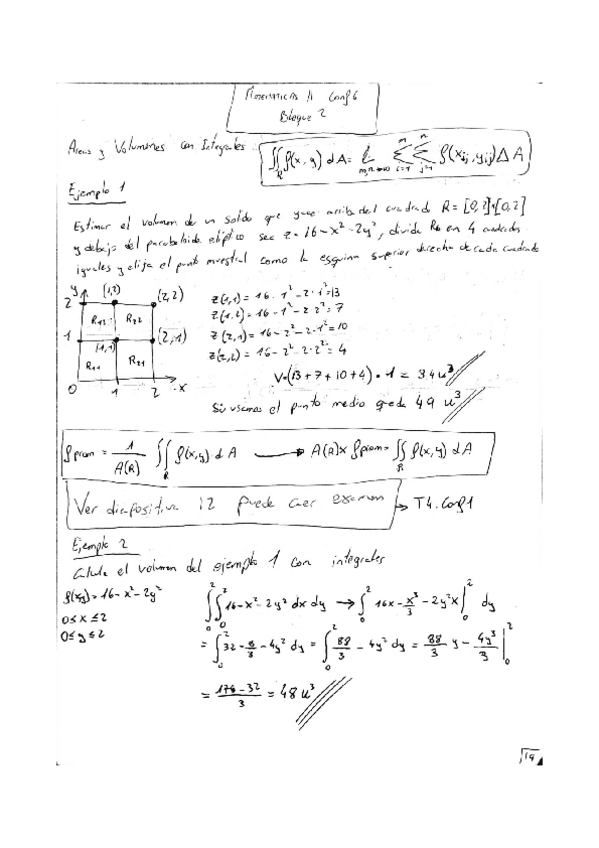 Matematicas II Conf 6
Bloque 2
Areas y Volumenes con Integrales ∬_R f(x, y) dA = L_{m,n→∞} Σ_{i=1}^{m} Σ_{j=1}^{n} f(xij, yij) ΔA
Ejemplo 1
Estimar el volumen de un solido que yace arriba del cuadrado R = [0,2]x[0,2]
y debajo del paraboloide eliptico sea z = 16 - x² - 2y², divida R en 4 cuadrados
iguales y elija el punto muestral como la esquina superior derecha de cada cuadrado
y
2
(1,2)
(2,2)
R12
R22
1
(1,1)
(2,1)
R11
R21
0
1
2
x
z(1,1) = 16 - 1² - 2·1² = 13
z(1,2) = 16 - 1² - 2·2² = 7
z(2,1) = 16 - 2² - 2·1² = 10
z(2,2) = 16 - 2² - 2·2² = 4
V = (13 + 7 + 10 + 4) · 1 = 34 u³
Si usamos el punto medio queda 49 u³
f prom = 1/A(R) ∬_R f(x,y) dA → A(R) x f prom = ∬_R f(x,y) dA
Ver diapositiva 12 puede caer examen → T4. Conf 1
Ejemplo 2
Calcula el volumen del ejemplo 1 con integrales
f(x,y) = 16 - x² - 2y²
0 ≤ x ≤ 2
0 ≤ y ≤ 2
∫_0^2 ∫_0^2 16 - x² - 2y² dx dy → ∫_0^2 16x - x³/3 - 2y²x |_0^2 dy
= ∫_0^2 32 - 8/3 - 4y² dy = ∫_0^2 88/3 - 4y² dy = 88/3 y - 4y³/3 |_0^2
= (176 - 32)/3 = 48 u³
19